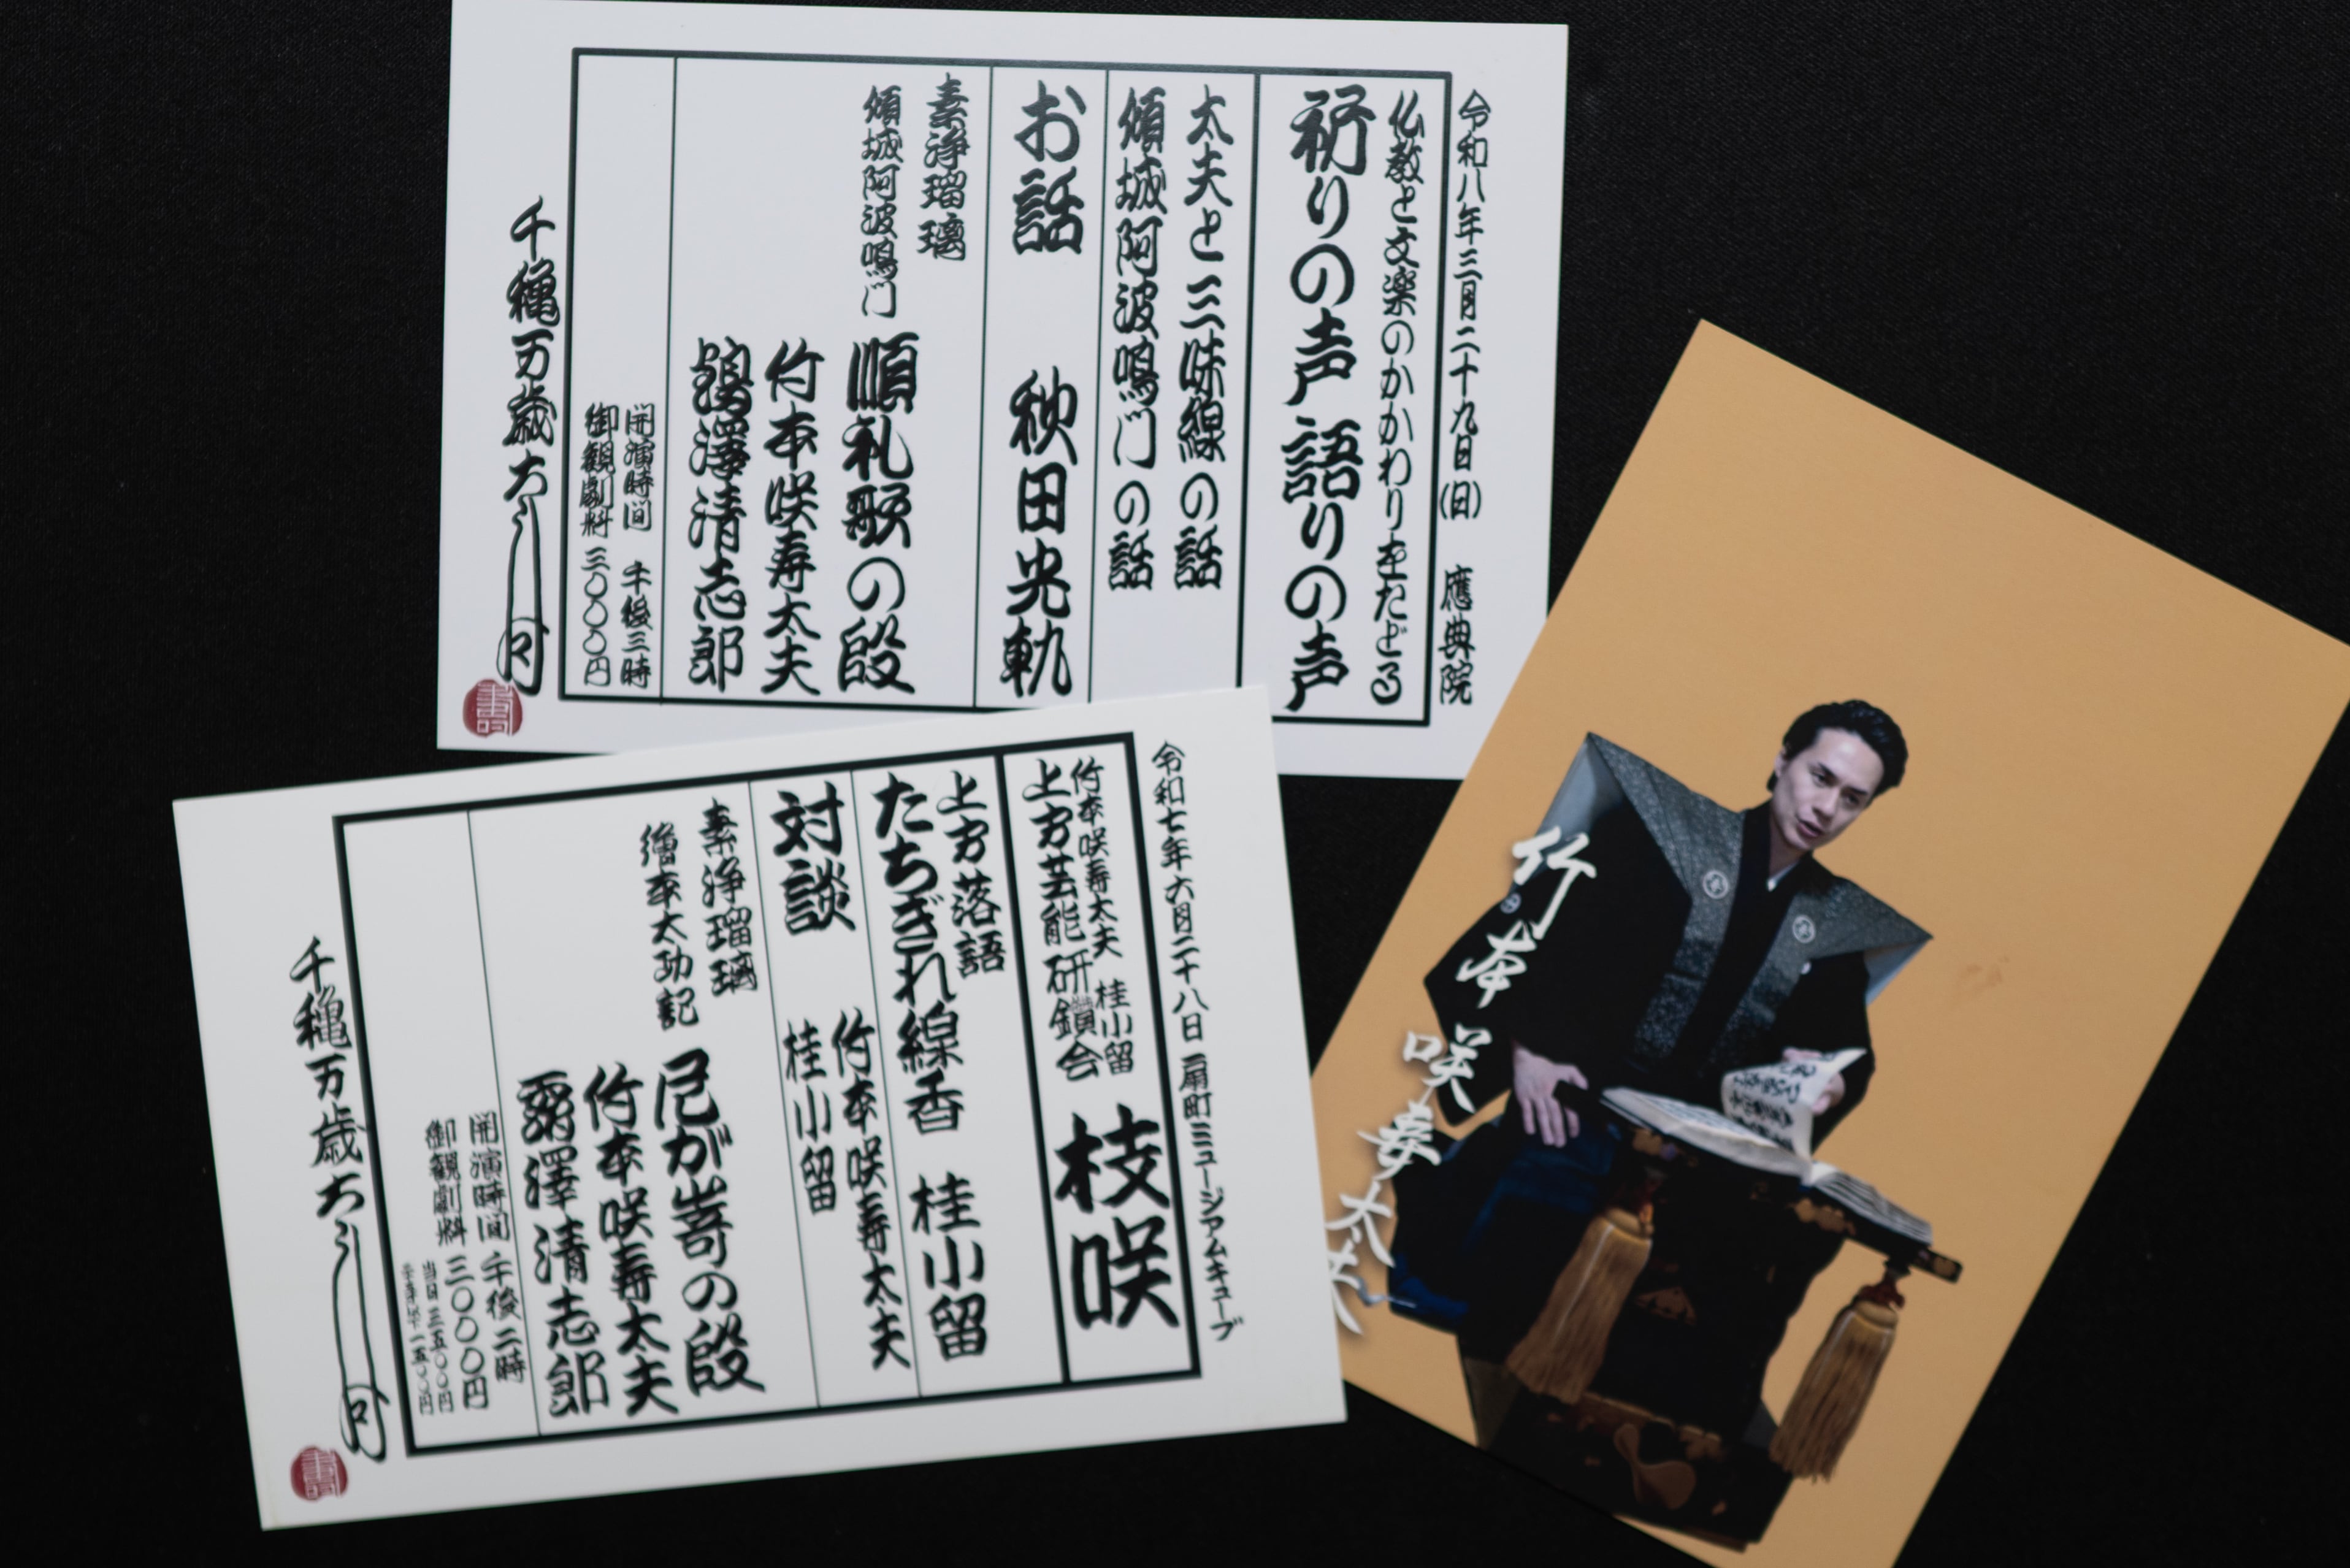 令和八年三月二十九日(日) 應典院
仏教と文楽のかかわりをたどる
祈りの声 語りの声
太夫と三味線の話
傾城阿波鳴門の話
お話 秋田光軌
素浄瑠璃
傾城阿波鳴門 順礼歌の段
竹本咲寿太夫
鶴澤清志郎
開演時間 午後三時
御観劇料 三〇〇〇円
千穐万歳大入叶
令和七年六月二十八日 扇町ミュージアムキューブ
竹本咲寿太夫 桂小留
上方芸能研鑽会 枝咲
上方落語
たちぎれ線香 桂小留
対談 竹本咲寿太夫
桂小留
素浄瑠璃
繪本太功記 尼が崎の段
竹本咲寿太夫
鶴澤清志郎
開演時間 午後二時
御観劇料 三〇〇〇円
当日 三五〇〇円
千穐万歳大入叶
竹本咲寿太夫